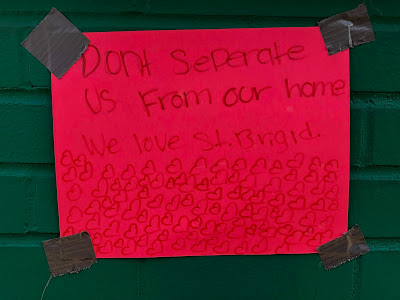 Dont Seperate
us From our home
We love St. Brigid.